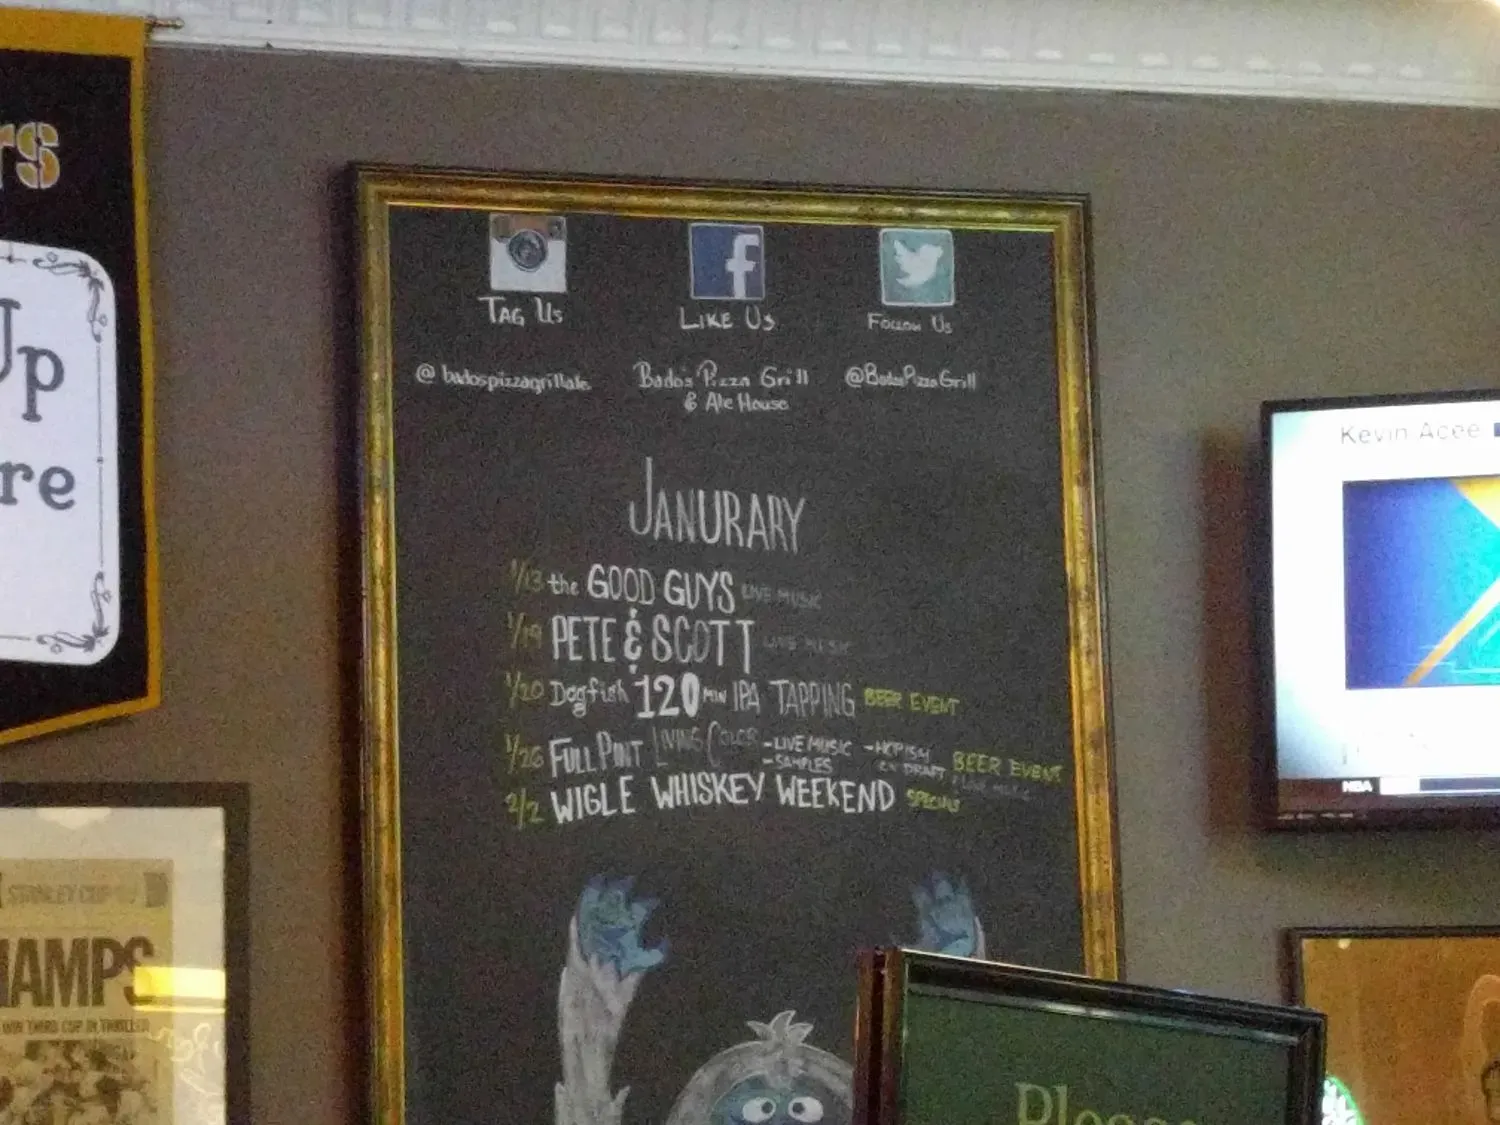 rs
Up
re
TAG US
LIKE US
FOLLOW US
@badospizzagrillale
Bado's Pizza Grill
& Ale House
@BadosPizzaGrill
JANURARY
1/13 the GOOD GUYS LIVE MUSIC
1/19 PETE & SCOTT LIVE MUSIC
1/20 Dogfish 120 MIN IPA TAPPING BEER EVENT
1/26 FULL PINT LIVING COLOR -LIVE MUSIC -HOPISM BEER EVENT
-SAMPLES ON DRAFT LIVE MUSIC
2/2 WIGLE WHISKEY WEEKEND SPECIALS
Kevin Acee
NBA
STANLEY CUP
HAMPS
WIN THIRD CUP IN THRILLER
Please